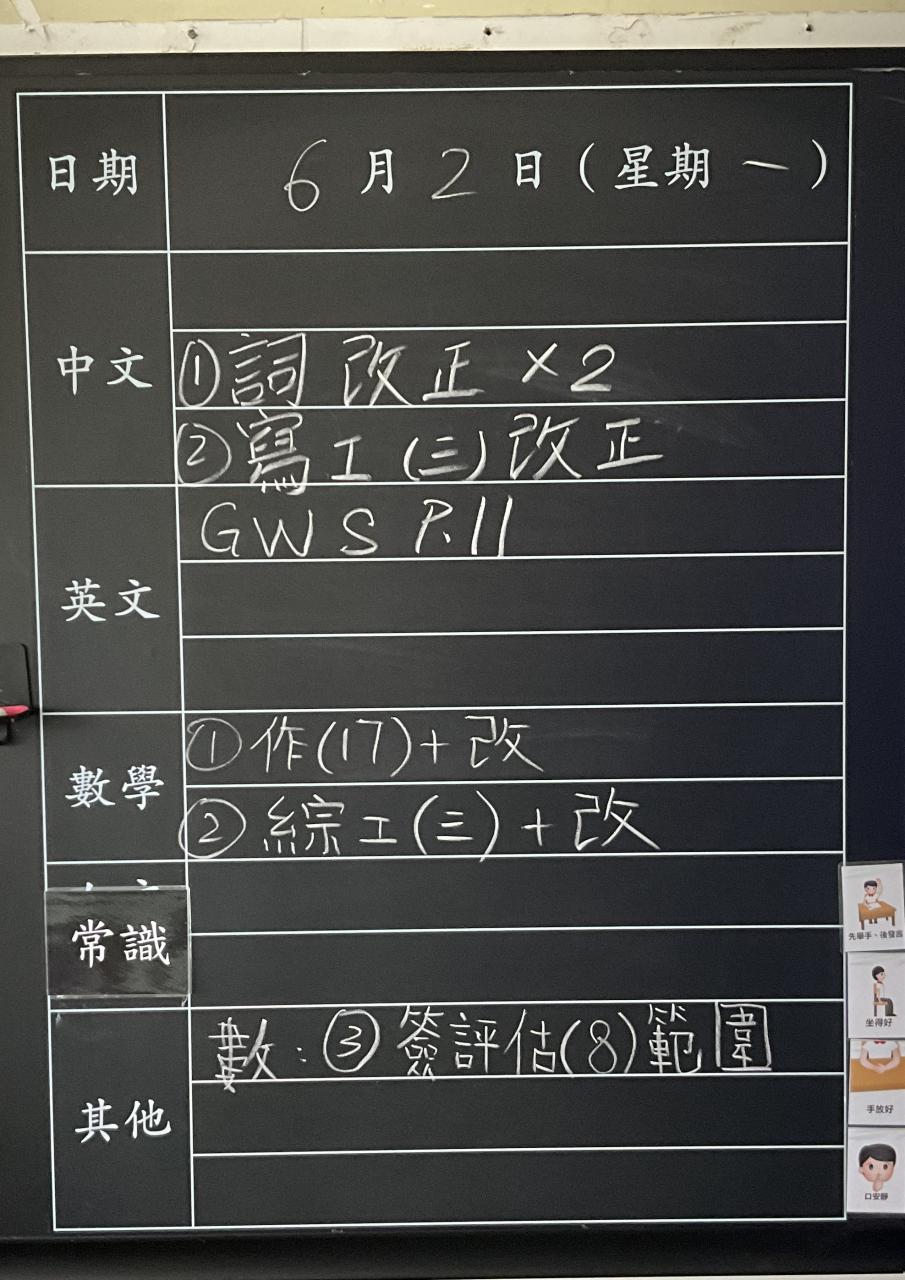 日期 6月2日(星期一)
中文
①詞 改正 ×2
②寫工(三)改正
英文
GWS P.11
數學
①作(17)+改
②綜工(三)+改
常識
其他
數:③簽評估(8)範圍
先舉手、後發言
坐得好
手放好
口安靜